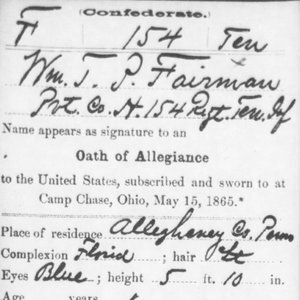 (Confederate.)
F 154 Ten
Wm. T. P. Fairman
Pvt. Co. H. 154 Regt. Ten. Inf
Name appears as signature to an
Oath of Allegiance
to the United States, subscribed and sworn to at
Camp Chase, Ohio, May 15, 1865.*
Place of residence Alleghaney Co. Penn
Complexion Florid ; hair
Eyes Blue ; height 5 ft. 10 in.
Age years